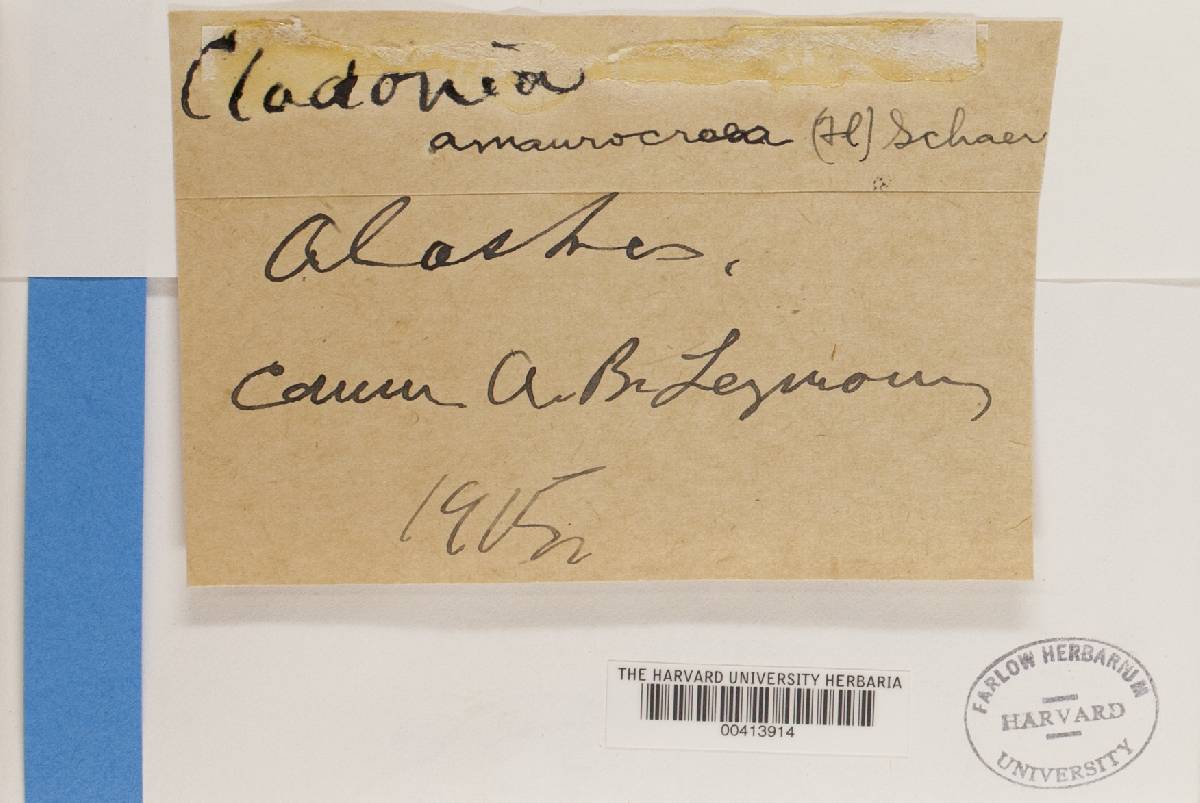 Cladonia
amaurocraea (Fl) Schaer
Alaska.
Comm A. B. Seymour
191
THE HARVARD UNIVERSITY HERBARIA
00413914
FARLOW HERBARIUM
HARVARD
UNIVERSITY